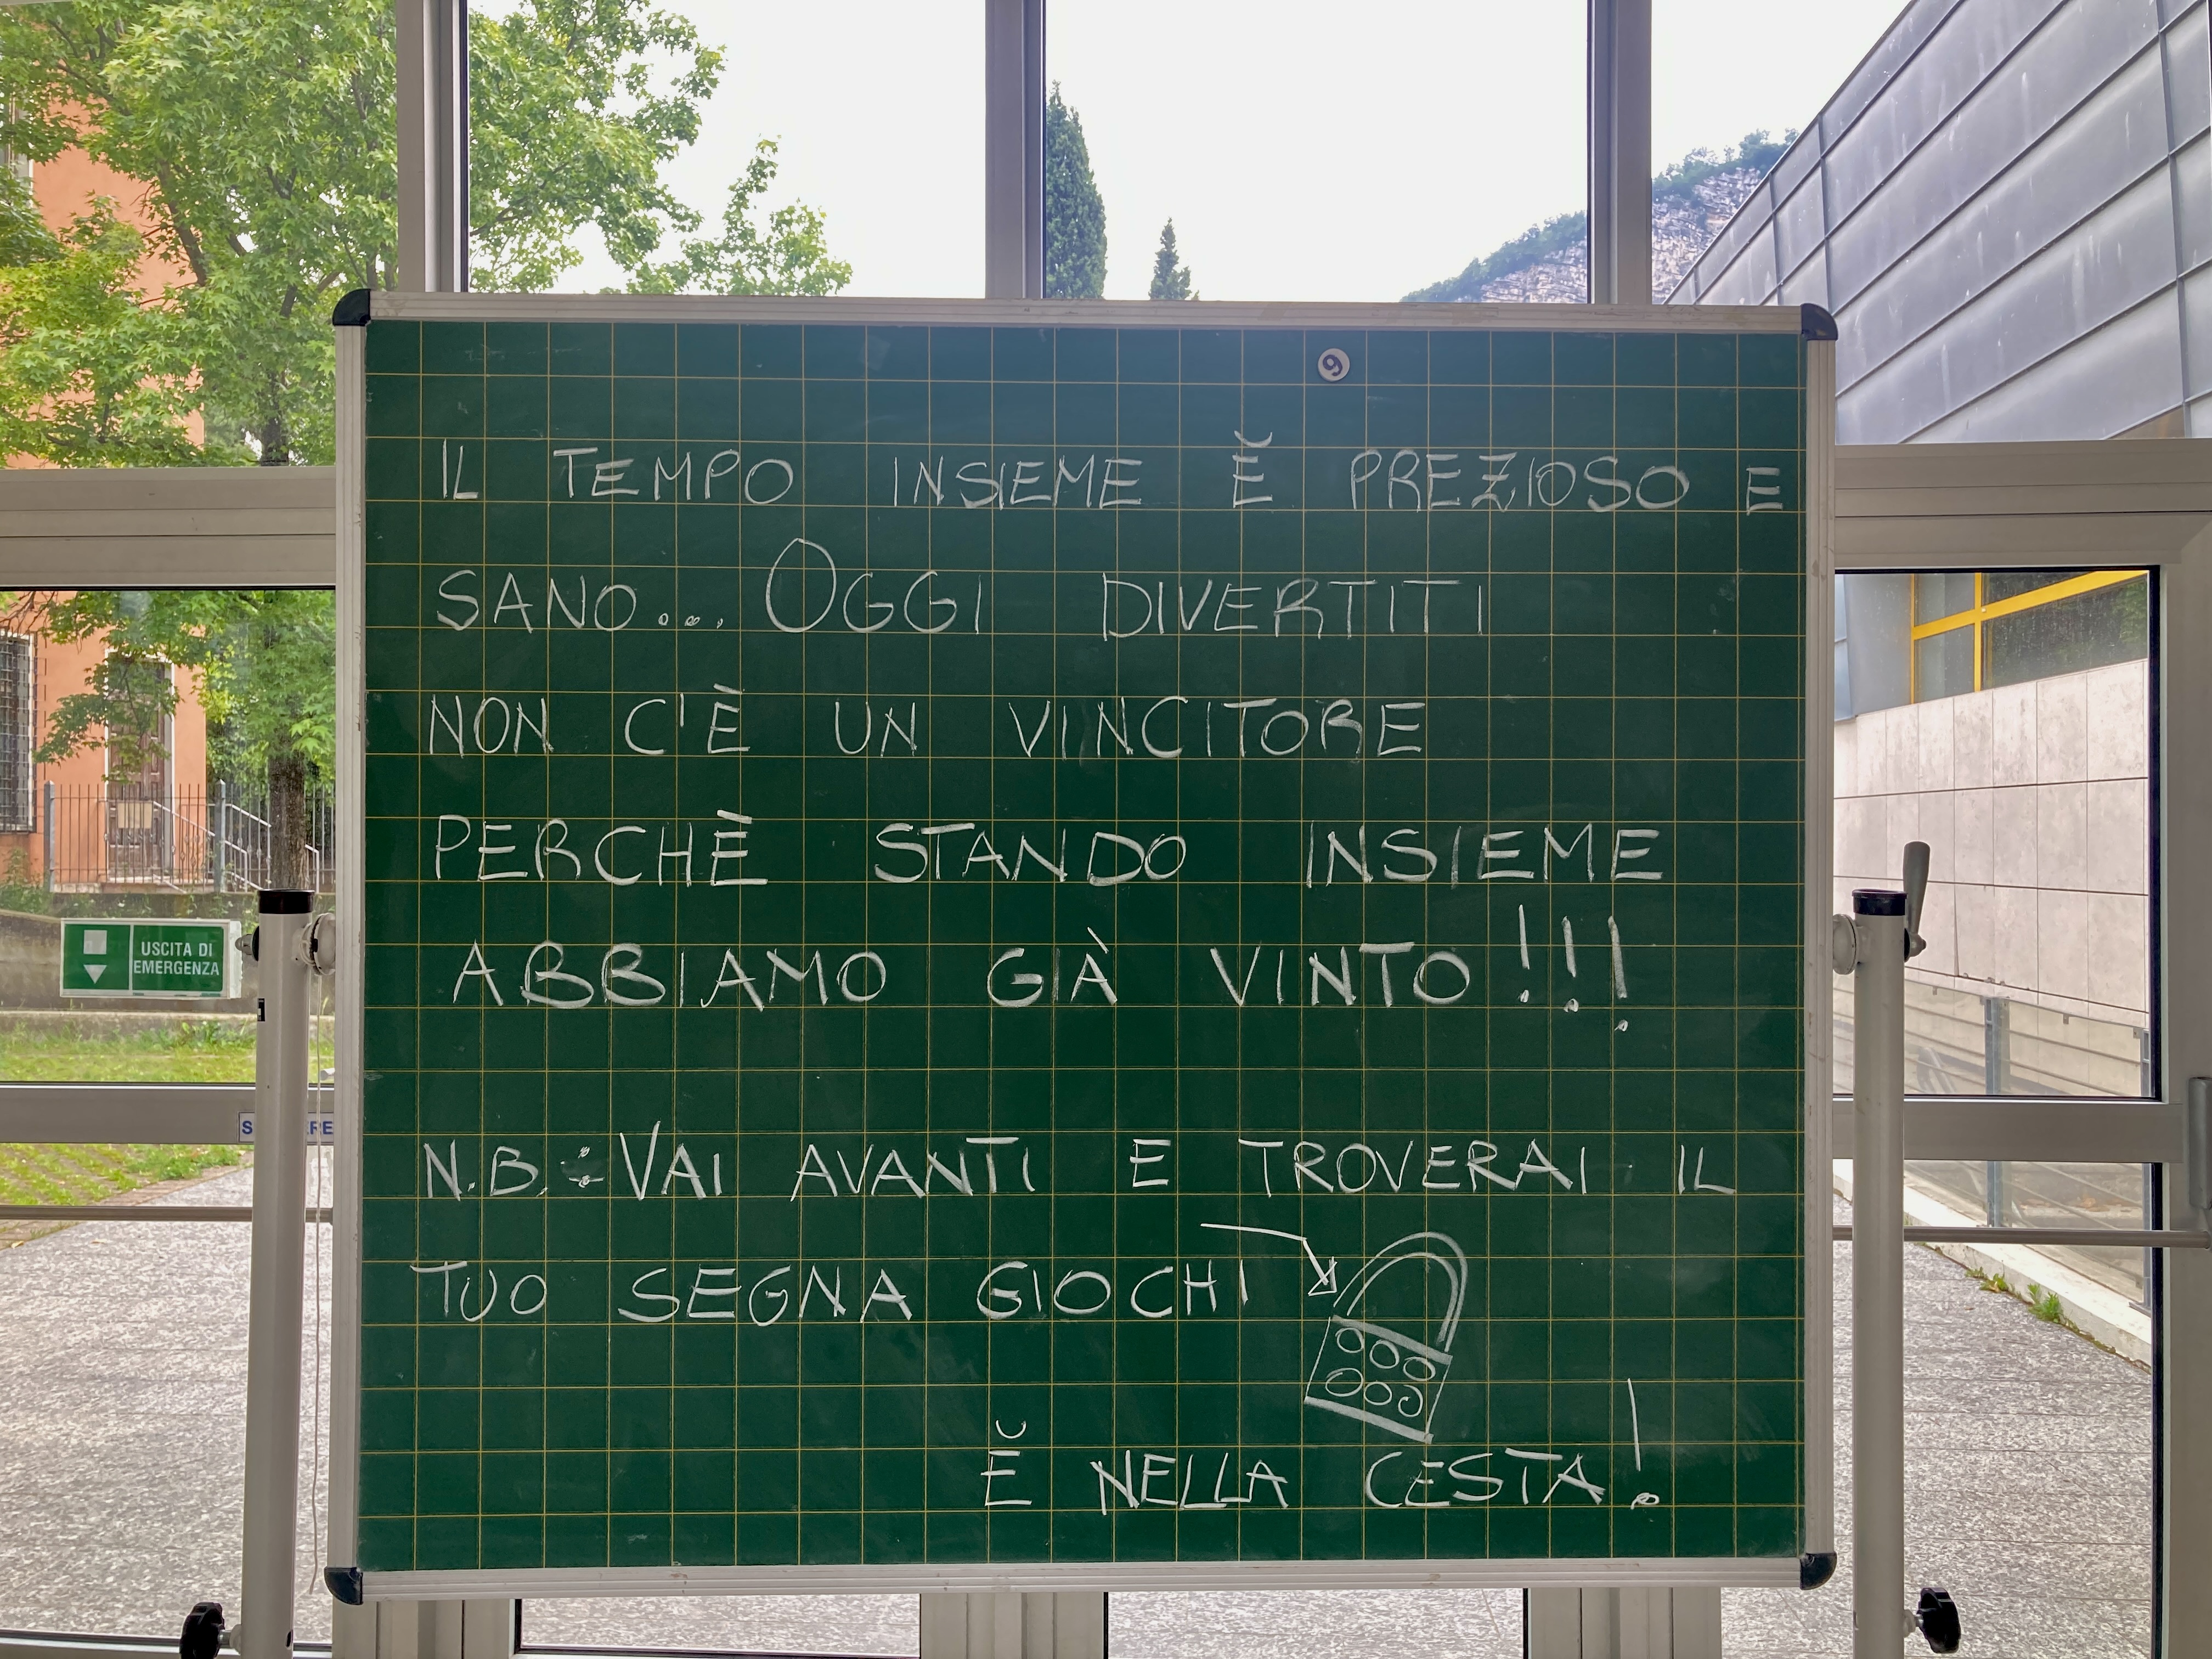 9
IL TEMPO INSIEME Ĕ PREZIOSO E
SANO... OGGI DIVERTITI
NON C'È UN VINCITORE
PERCHÈ STANDO INSIEME
ABBIAMO GIÀ VINTO!!!
N.B.: VAI AVANTI E TROVERAI IL
TUO SEGNA GIOCHI
Ĕ NELLA CESTA!
USCITA DI
EMERGENZA